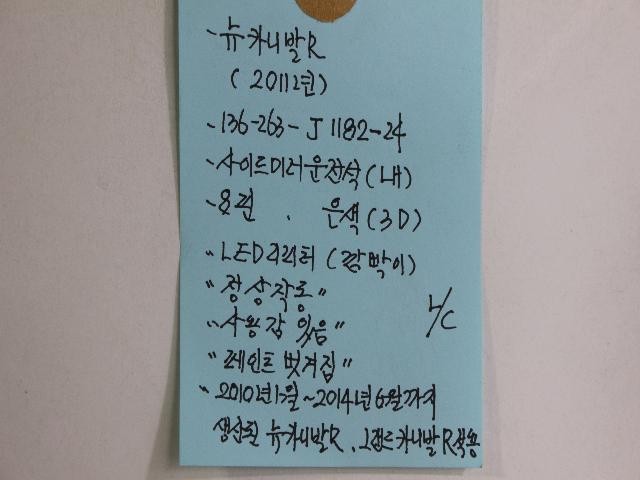 - 뉴카니발R
(2011년)
- 136-263-J1182-24
- 사이드미러운전석(내)
- 8핀 . 은색(3D)
" LED리피터(깜빡이)
"정상작동"
"사용감 있음" L/C
"페인트 벗겨짐"
" 2010년1월~2014년6월까지
생산된 뉴카니발R, 그랜드카니발R적용